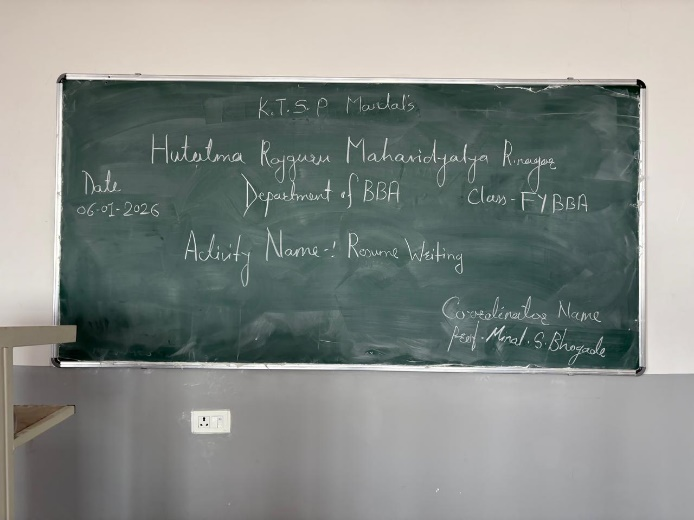 K.T.S.P Mandal's
Hutatma Rajguru Mahavidyalya R.nagar
Date
06-01-2026
Department of BBA
Class - FYBBA
Activity Name -: Resume Writing
Co-ordinator Name
Prof. Minal. S. Bhogade